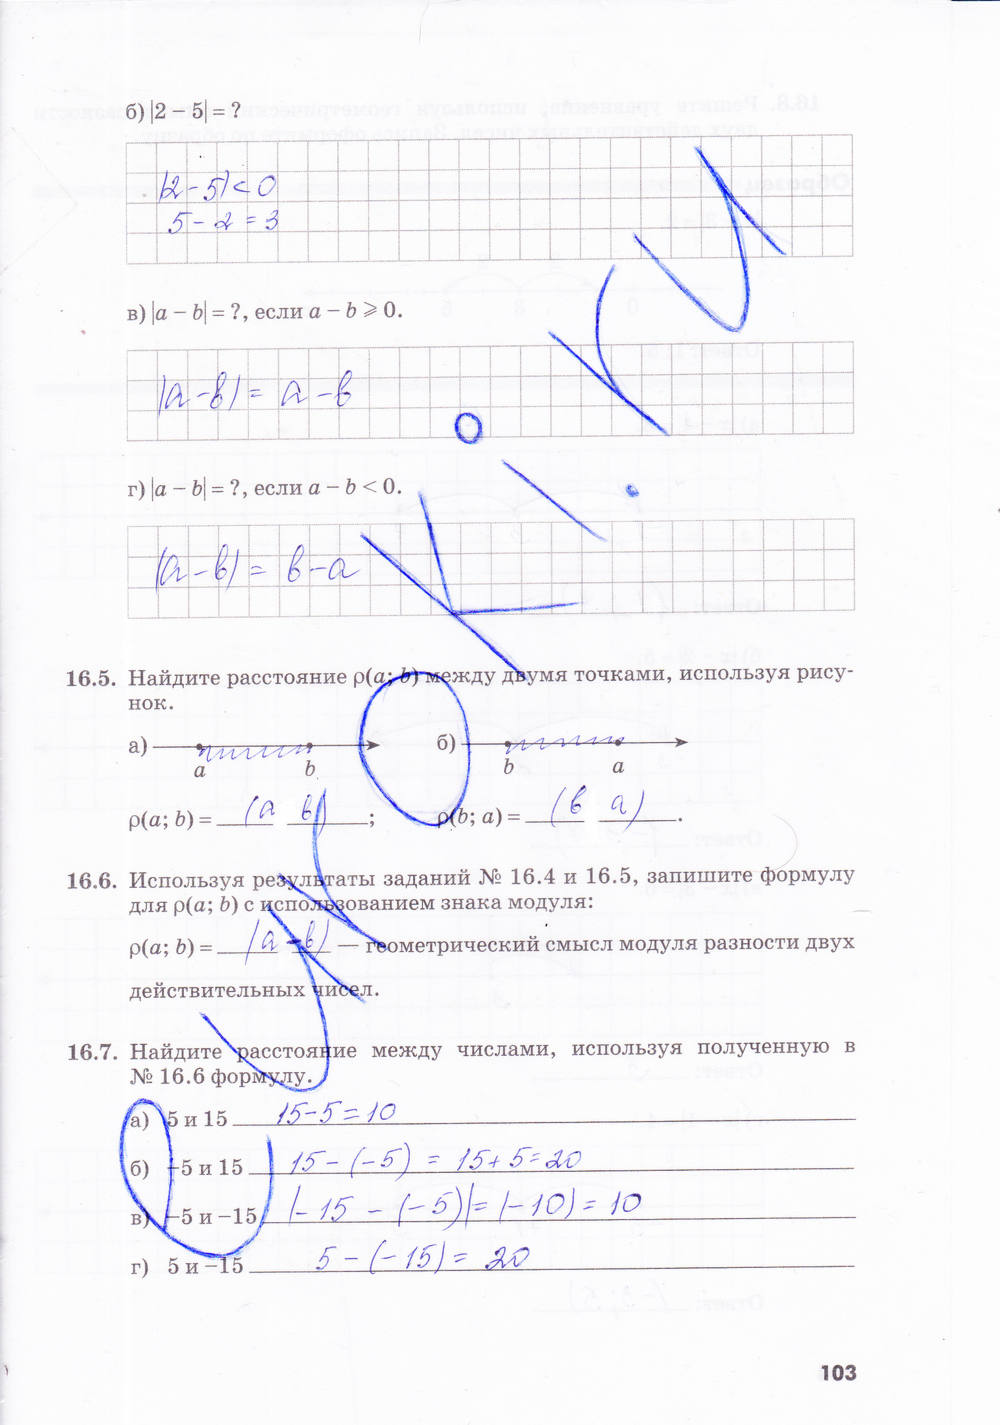 б) |2 − 5| = ?
|2 − 5| < 0
5 − 2 = 3
в) |a − b| = ?, если a − b ⩾ 0.
|a − b| = a − b
г) |a − b| = ?, если a − b < 0.
|a − b| = b − a
16.5. Найдите расстояние ρ(a; b) между двумя точками, используя рису-
нок.
а) a b б) b a
ρ(a; b) = (a b) ; ρ(b; a) = (b a) .
16.6. Используя результаты заданий № 16.4 и 16.5, запишите формулу
для ρ(a; b) с использованием знака модуля:
ρ(a; b) = |a − b| — геометрический смысл модуля разности двух
действительных чисел.
16.7. Найдите расстояние между числами, используя полученную в
№ 16.6 формулу.
а) 5 и 15 15 − 5 = 10
б) −5 и 15 15 − (−5) = 15 + 5 = 20
в) −5 и −15 |−15 − (−5)| = |−10| = 10
г) 5 и −15 5 − (−15) = 20
103